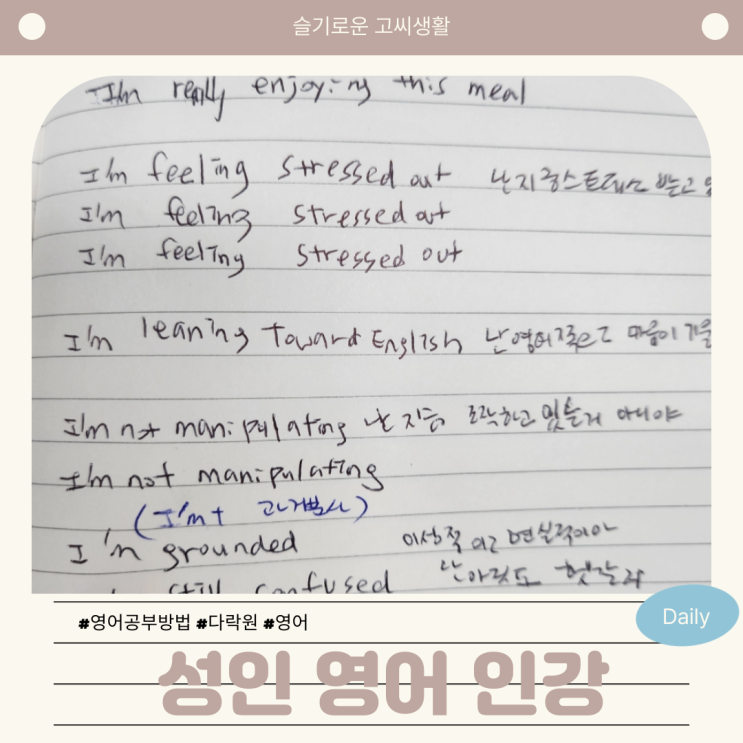 슬기로운 고씨생활
I'm really enjoying this meal
I'm feeling stressed out 난 지금 스트레스 받고
I'm feeling stressed out
I'm feeling stressed out
I'm leaning toward English 난 영어쪽으로 마음이 기울
I'm not manipulating 난 지금 조작하고 있는게 아니야
I'm not manipulating
(I'm + 과거분사)
I'm grounded 이성적 이고 현실적이야
still confused 난 아직도 헷갈려
#영어공부방법 #다락원 #영어
Daily
성인 영어 인강